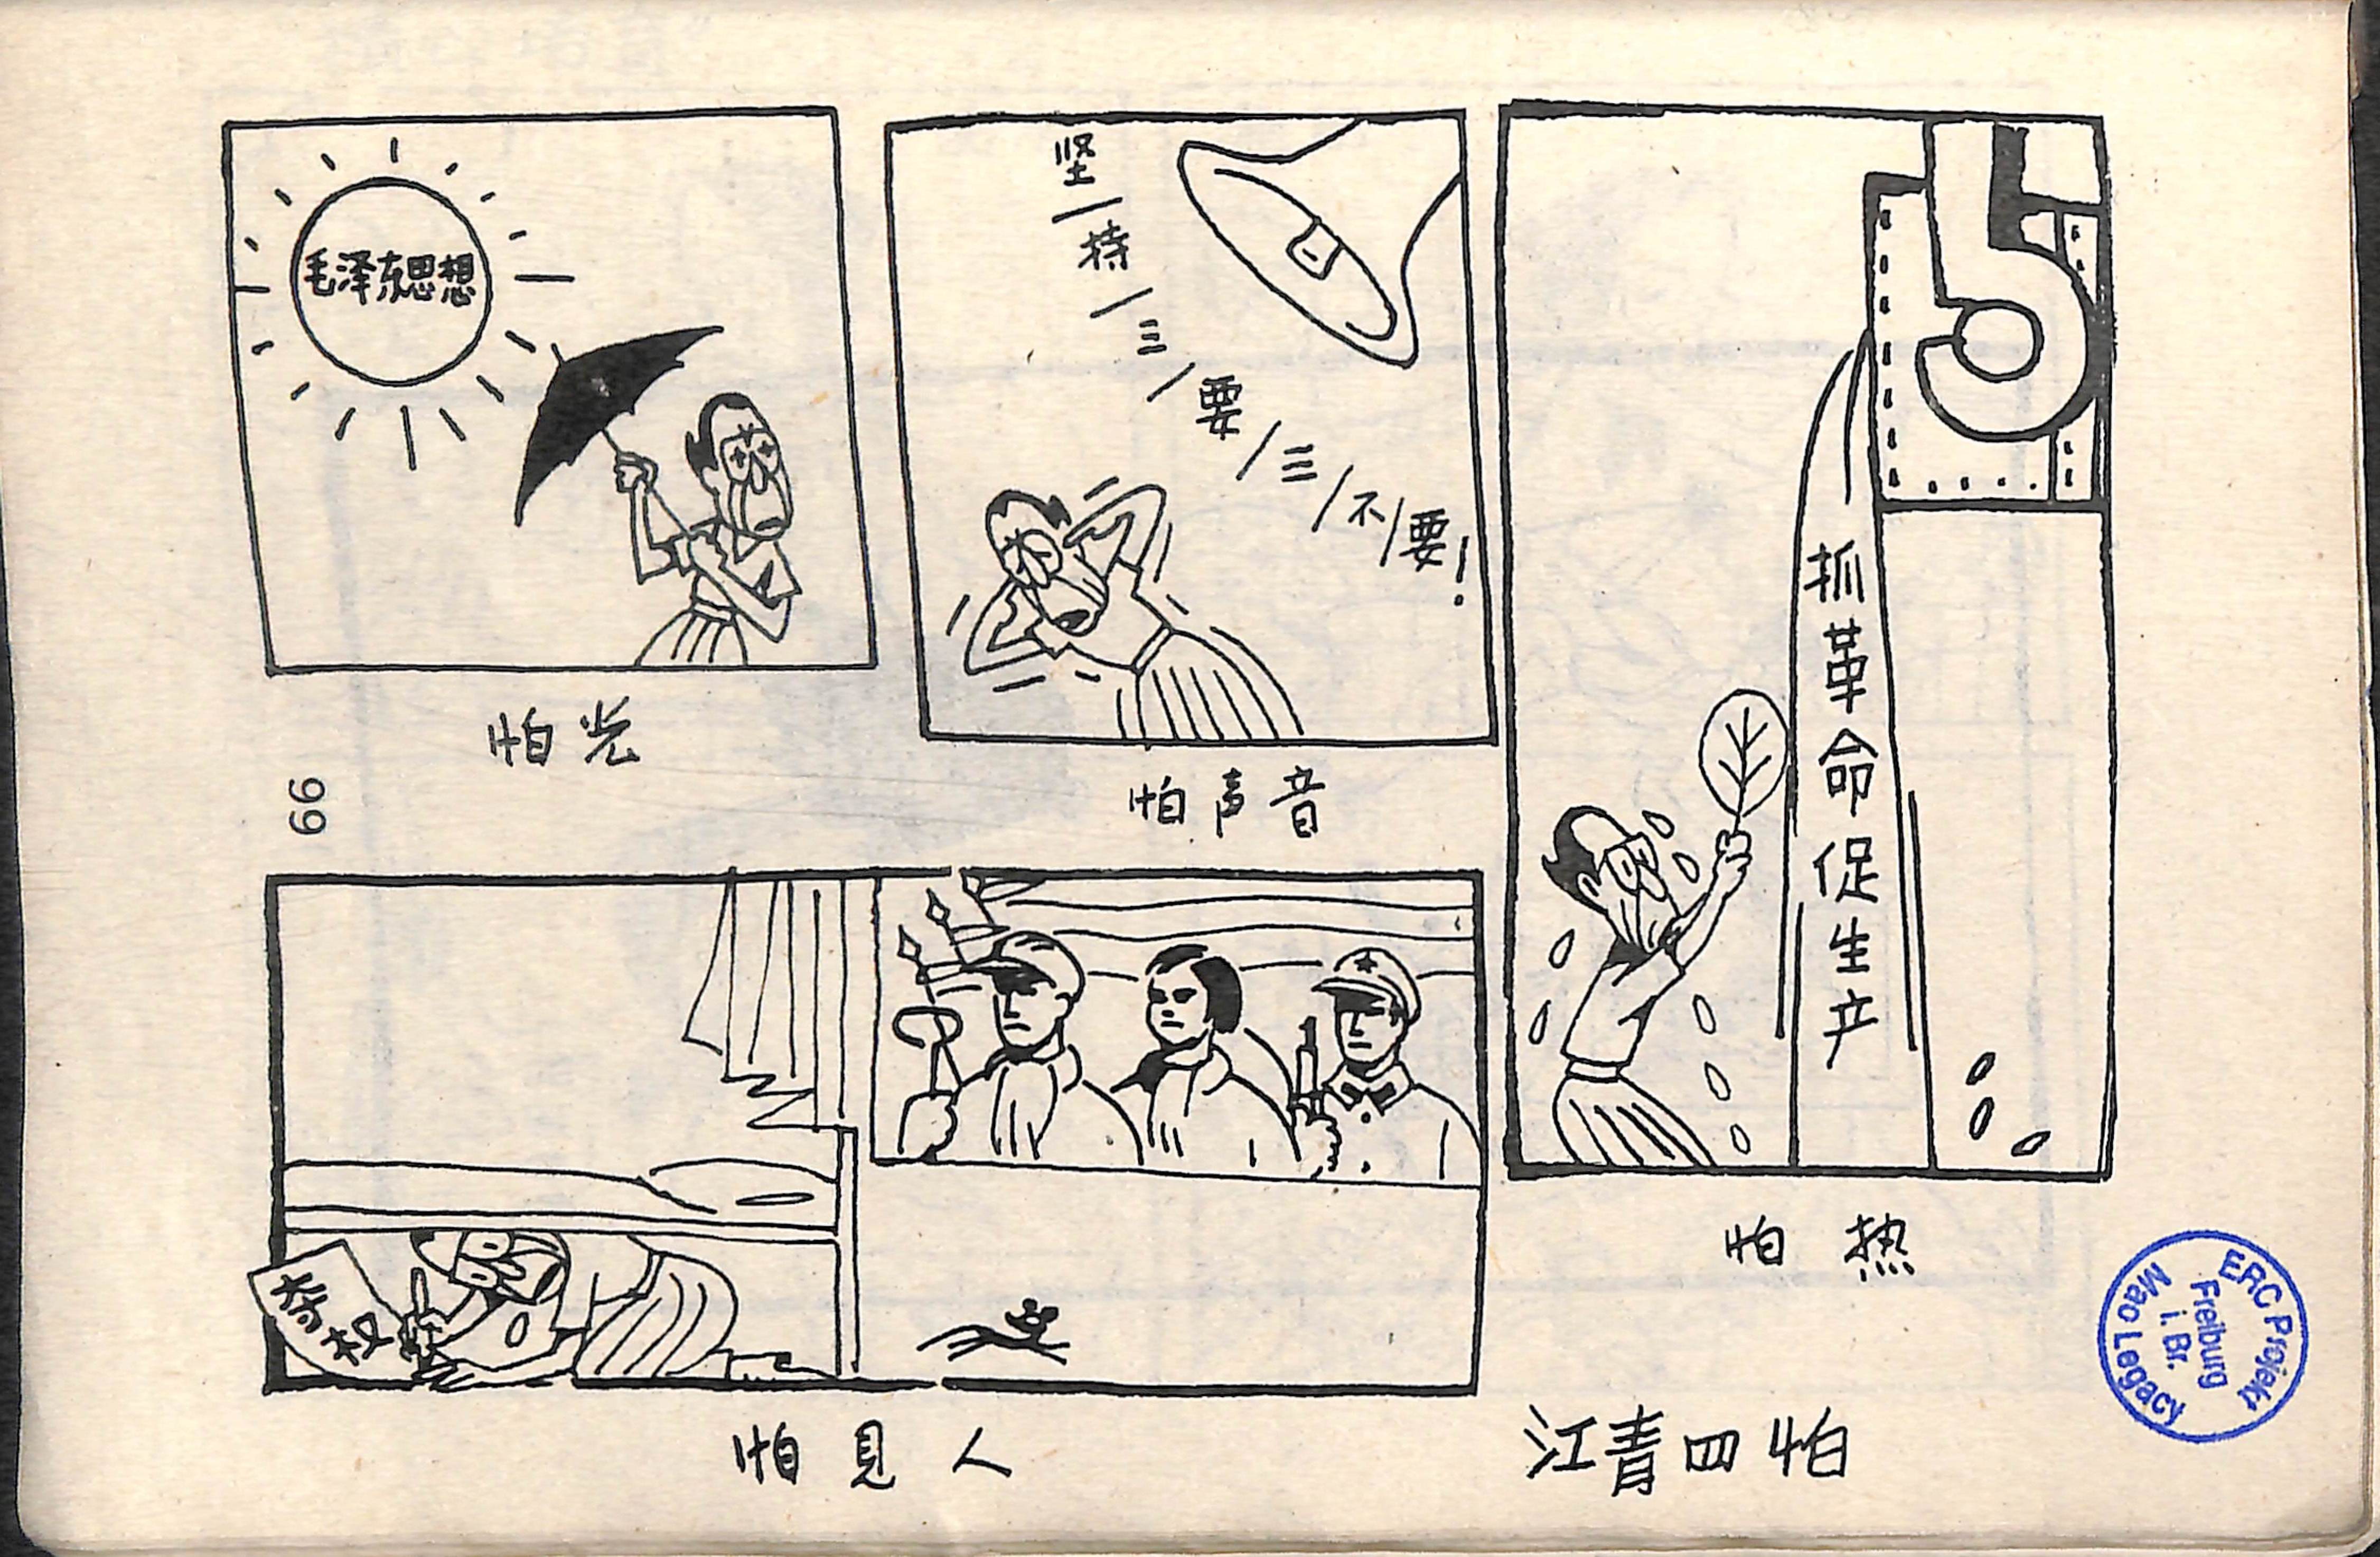 毛泽东思想
怕光
坚持三要三不要！
怕声音
抓革命促生产
怕热
66
夺权
怕見人
江青四怕
ERC Projekt
Freiburg
i. Br.
Mao Legacy